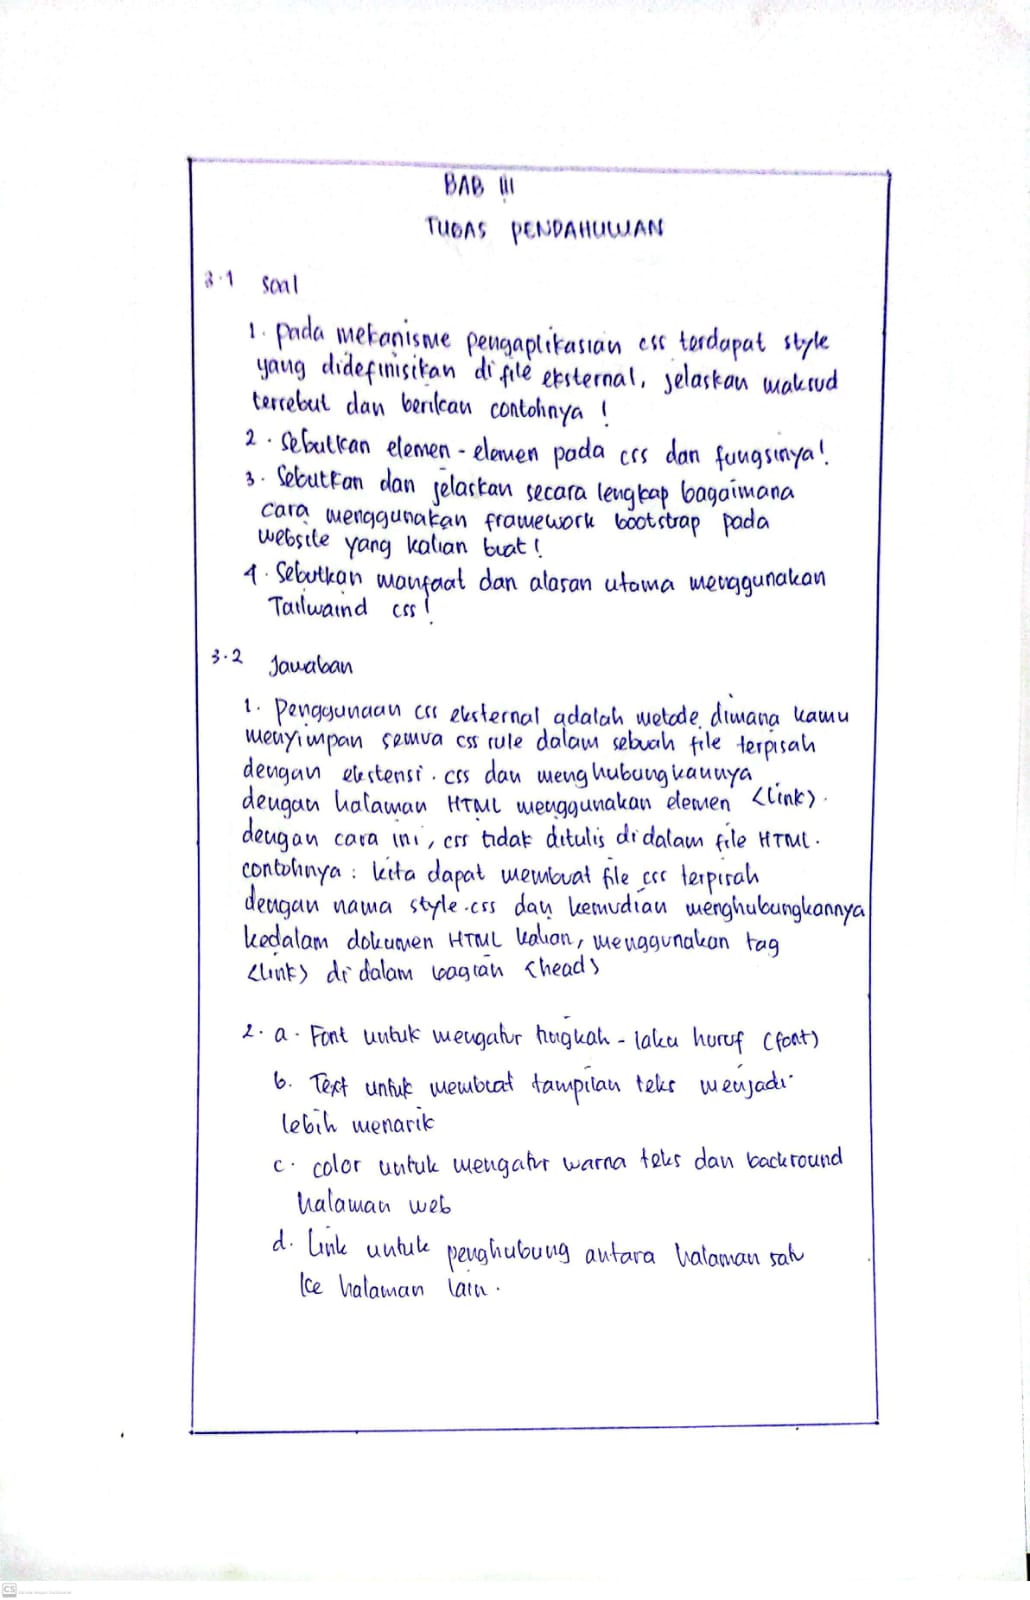 BAB III
TUGAS PENDAHULUAN
3.1 Soal
1. Pada mekanisme pengaplikasian css terdapat style
yang didefinisikan di file eksternal, jelaskan maksud
tersebut dan berikan contohnya !
2. Sebutkan elemen-elemen pada css dan fungsinya!
3. Sebutkan dan jelaskan secara lengkap bagaimana
cara menggunakan framework bootstrap pada
website yang kalian buat!
4. Sebutkan manfaat dan alasan utama menggunakan
Tailwaind css!
3.2 Jawaban
1. Penggunaan css eksternal adalah metode dimana kamu
menyimpan semua css rule dalam sebuah file terpisah
dengan ekstensi .css dan menghubungkannya
dengan halaman HTML menggunakan elemen <link>.
dengan cara ini, css tidak ditulis di dalam file HTML.
contohnya : kita dapat membuat file css terpisah
dengan nama style.css dan kemudian menghubungkannya
kedalam dokumen HTML kalian, menggunakan tag
<link> di dalam bagian <head>
2. a. Font untuk mengatur tingkah-laku huruf (font)
b. Text untuk membuat tampilan teks menjadi
lebih menarik
c. color untuk mengatur warna teks dan backround
halaman web
d. link untuk penghubung antara halaman satu
ke halaman lain.
CS